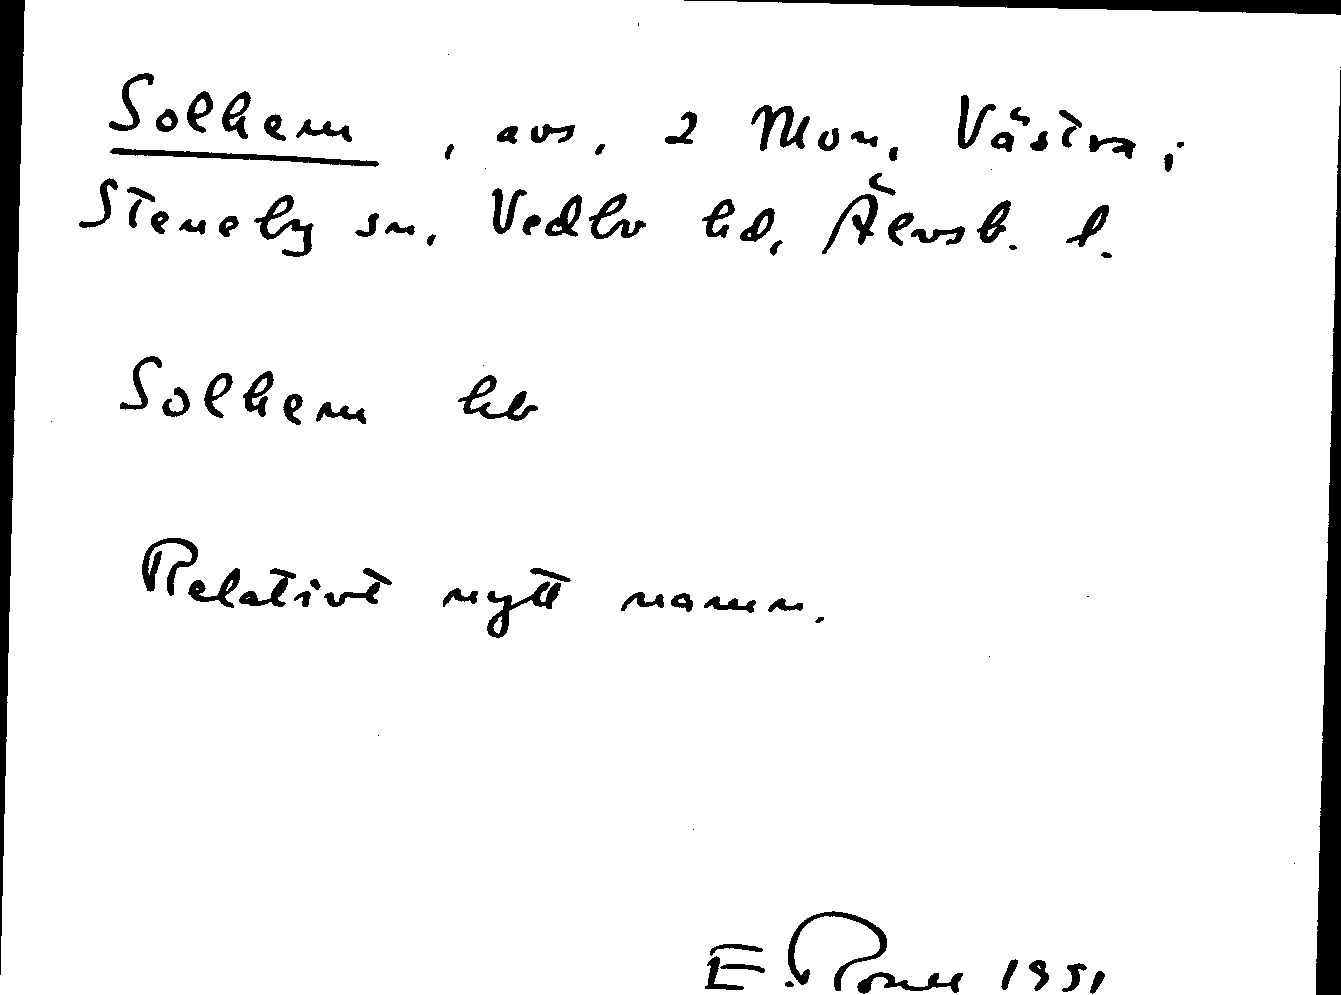 Solhem, avs. 2 Mon, Västra,
Steneby sn, Vedbo hd, Älvsb. l.
Solhem hb
Relativt nytt namn.
E. 1951